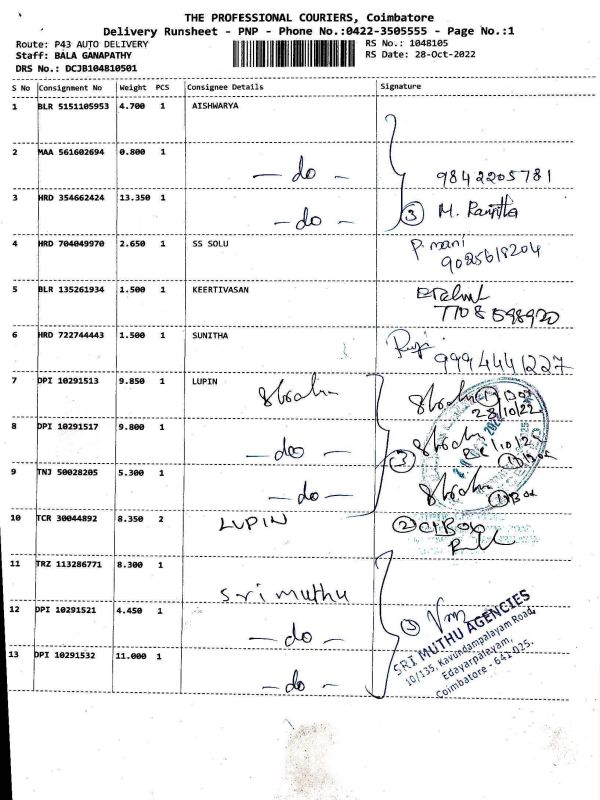 THE PROFESSIONAL COURIERS, Coimbatore
Delivery Runsheet - PNP - Phone No.:0422-3505555 - Page No.:1
Route: P43 AUTO DELIVERY
RS No.: 1048105
Staff: BALA GANAPATHY
RS Date: 28-Oct-2022
DRS No.: DCJB104810501
S No Consignment No Weight PCS Consignee Details Signature
1 BLR 5151105953 4.700 1 AISHWARYA
2 MAA 561602694 0.800 1 - do - 9842205781
3 HRD 354662424 13.350 1 - do - 3 M.
4 HRD 704049970 2.650 1 SS SOLU P. mani
9025618204
5 BLR 135261934 1.500 1 KEERTIVASAN
7708598920
6 HRD 722744443 1.500 1 SUNITHA
9994441227
7 DPI 10291513 9.850 1 LUPIN 1 Box
28/10/22
8 DPI 10291517 9.800 1 - do - 3
1 Box
9 TNJ 50028205 5.300 1 - do - 1 Box
10 TCR 30044892 8.350 2 LUPIN 2
11 TRZ 113286771 8.300 1 Sri muthu
12 DPI 10291521 4.450 1 - do - 3
13 DPI 10291532 11.000 1 - do -
SRI MUTHU AGENCIES
10/135, Kavundampalayam Road,
Edayarpalayam,
Coimbatore - 641 025.